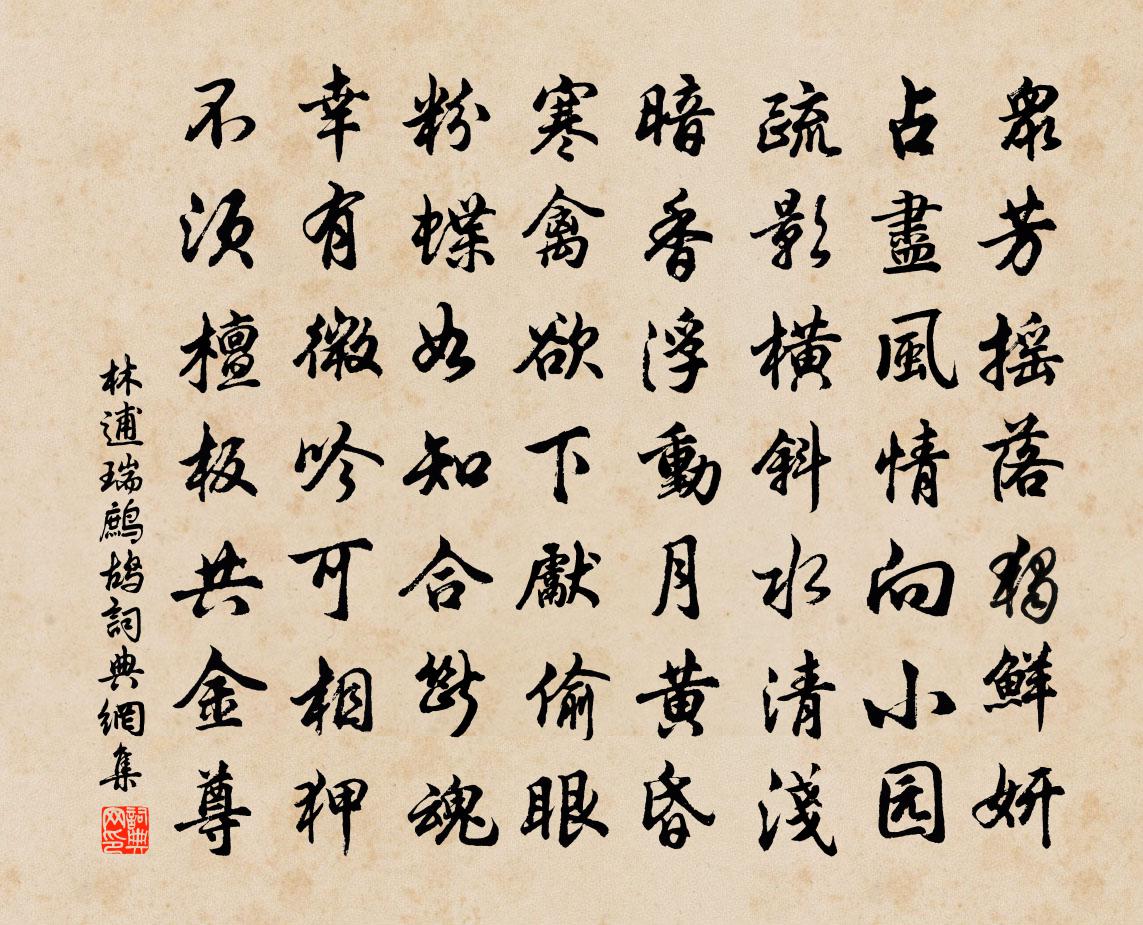 眾芳摇落獨鮮妍
占盡風情向小园
疏影橫斜水清淺
暗香浮動月黄昏
寒禽欲下獻偷眼
粉蝶如知合斷魂
幸有微吟可相狎
不須檀板共金尊
林逋瑞鷓鴣詞典網集
詞典网印